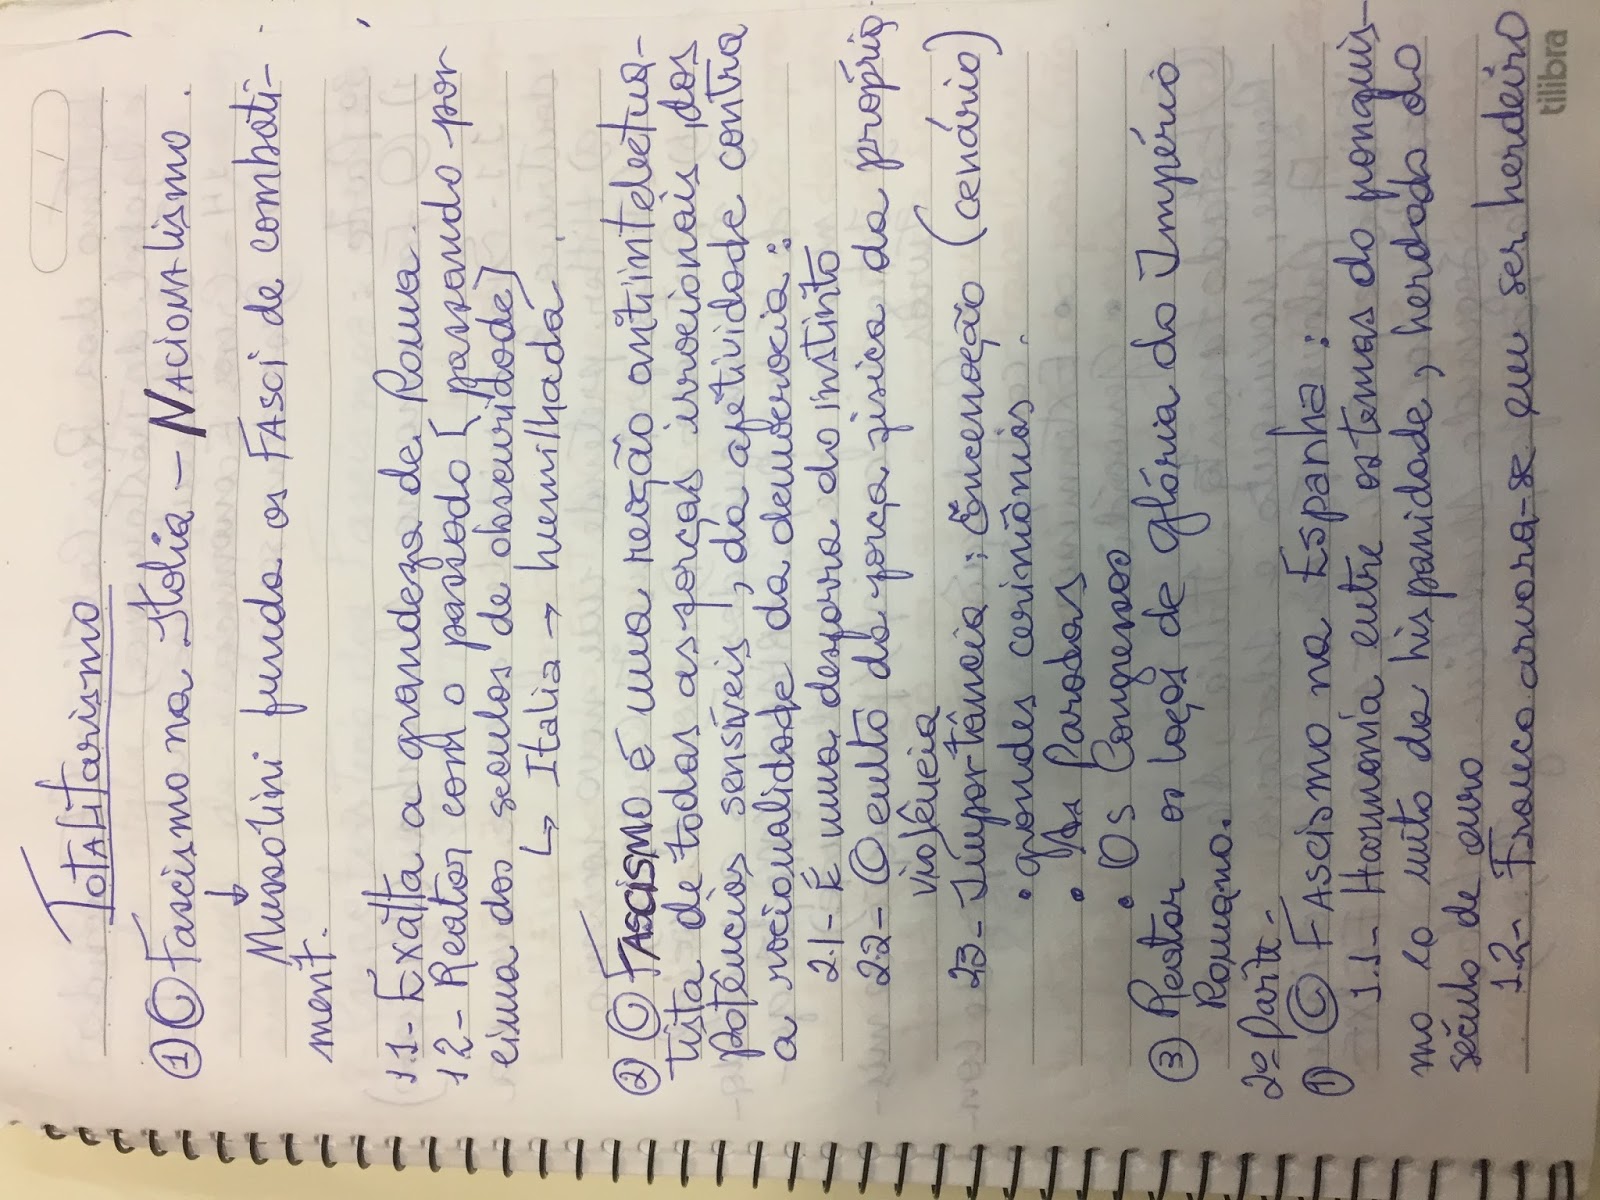 Totalitarismo
① O Fascismo na Itália – NACIONALISMO.
Mussolini funda os FASCI de combati-
ment.
1.1- Exalta a grandeza de Roma.
1.2- Reatar com o passado [passando por
cima dos séculos de obscuridade]
↳ Itália → humilhada.
② O FASCISMO é uma reação antiintelectua-
lista de todas as forças irracionais, das
potências sensíveis, da afetividade contra
a racionalidade da democracia:
2.1- É uma desforra do instinto
2.2- O culto da força física da própria
violência
2.3- Importância: Encenação (cenário)
• grandes cerimônias.
• As Paradas
• Os Congressos
③ Reatar os laços de glória do Império
Romano.
2ª parte.
① O FASCISMO na ESPANHA:
1.1- Harmonia entre os temas do franquis-
mo e o mito da hispanidade, herdado do
século de ouro
1.2- Franco arvora-se em ser herdeiro
tilibra